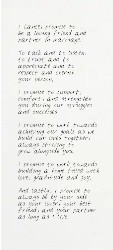 I (name), promise to
be a loving friend and
partner in marriage.
To talk and to listen,
to trust and to
appreciate and to
respect and cherish
your person.
I promise to support,
comfort and strengthen
you during our struggles
and successes
I promise to work towards
achieving our goals as we
build our lives together,
always striving to
grow alongside you.
I promise to work towards
building a home filled with
love, gratitude and joy.
And lastly, I promise to
always be by your side
as your lover, your best
friend and your partner
as long as I live